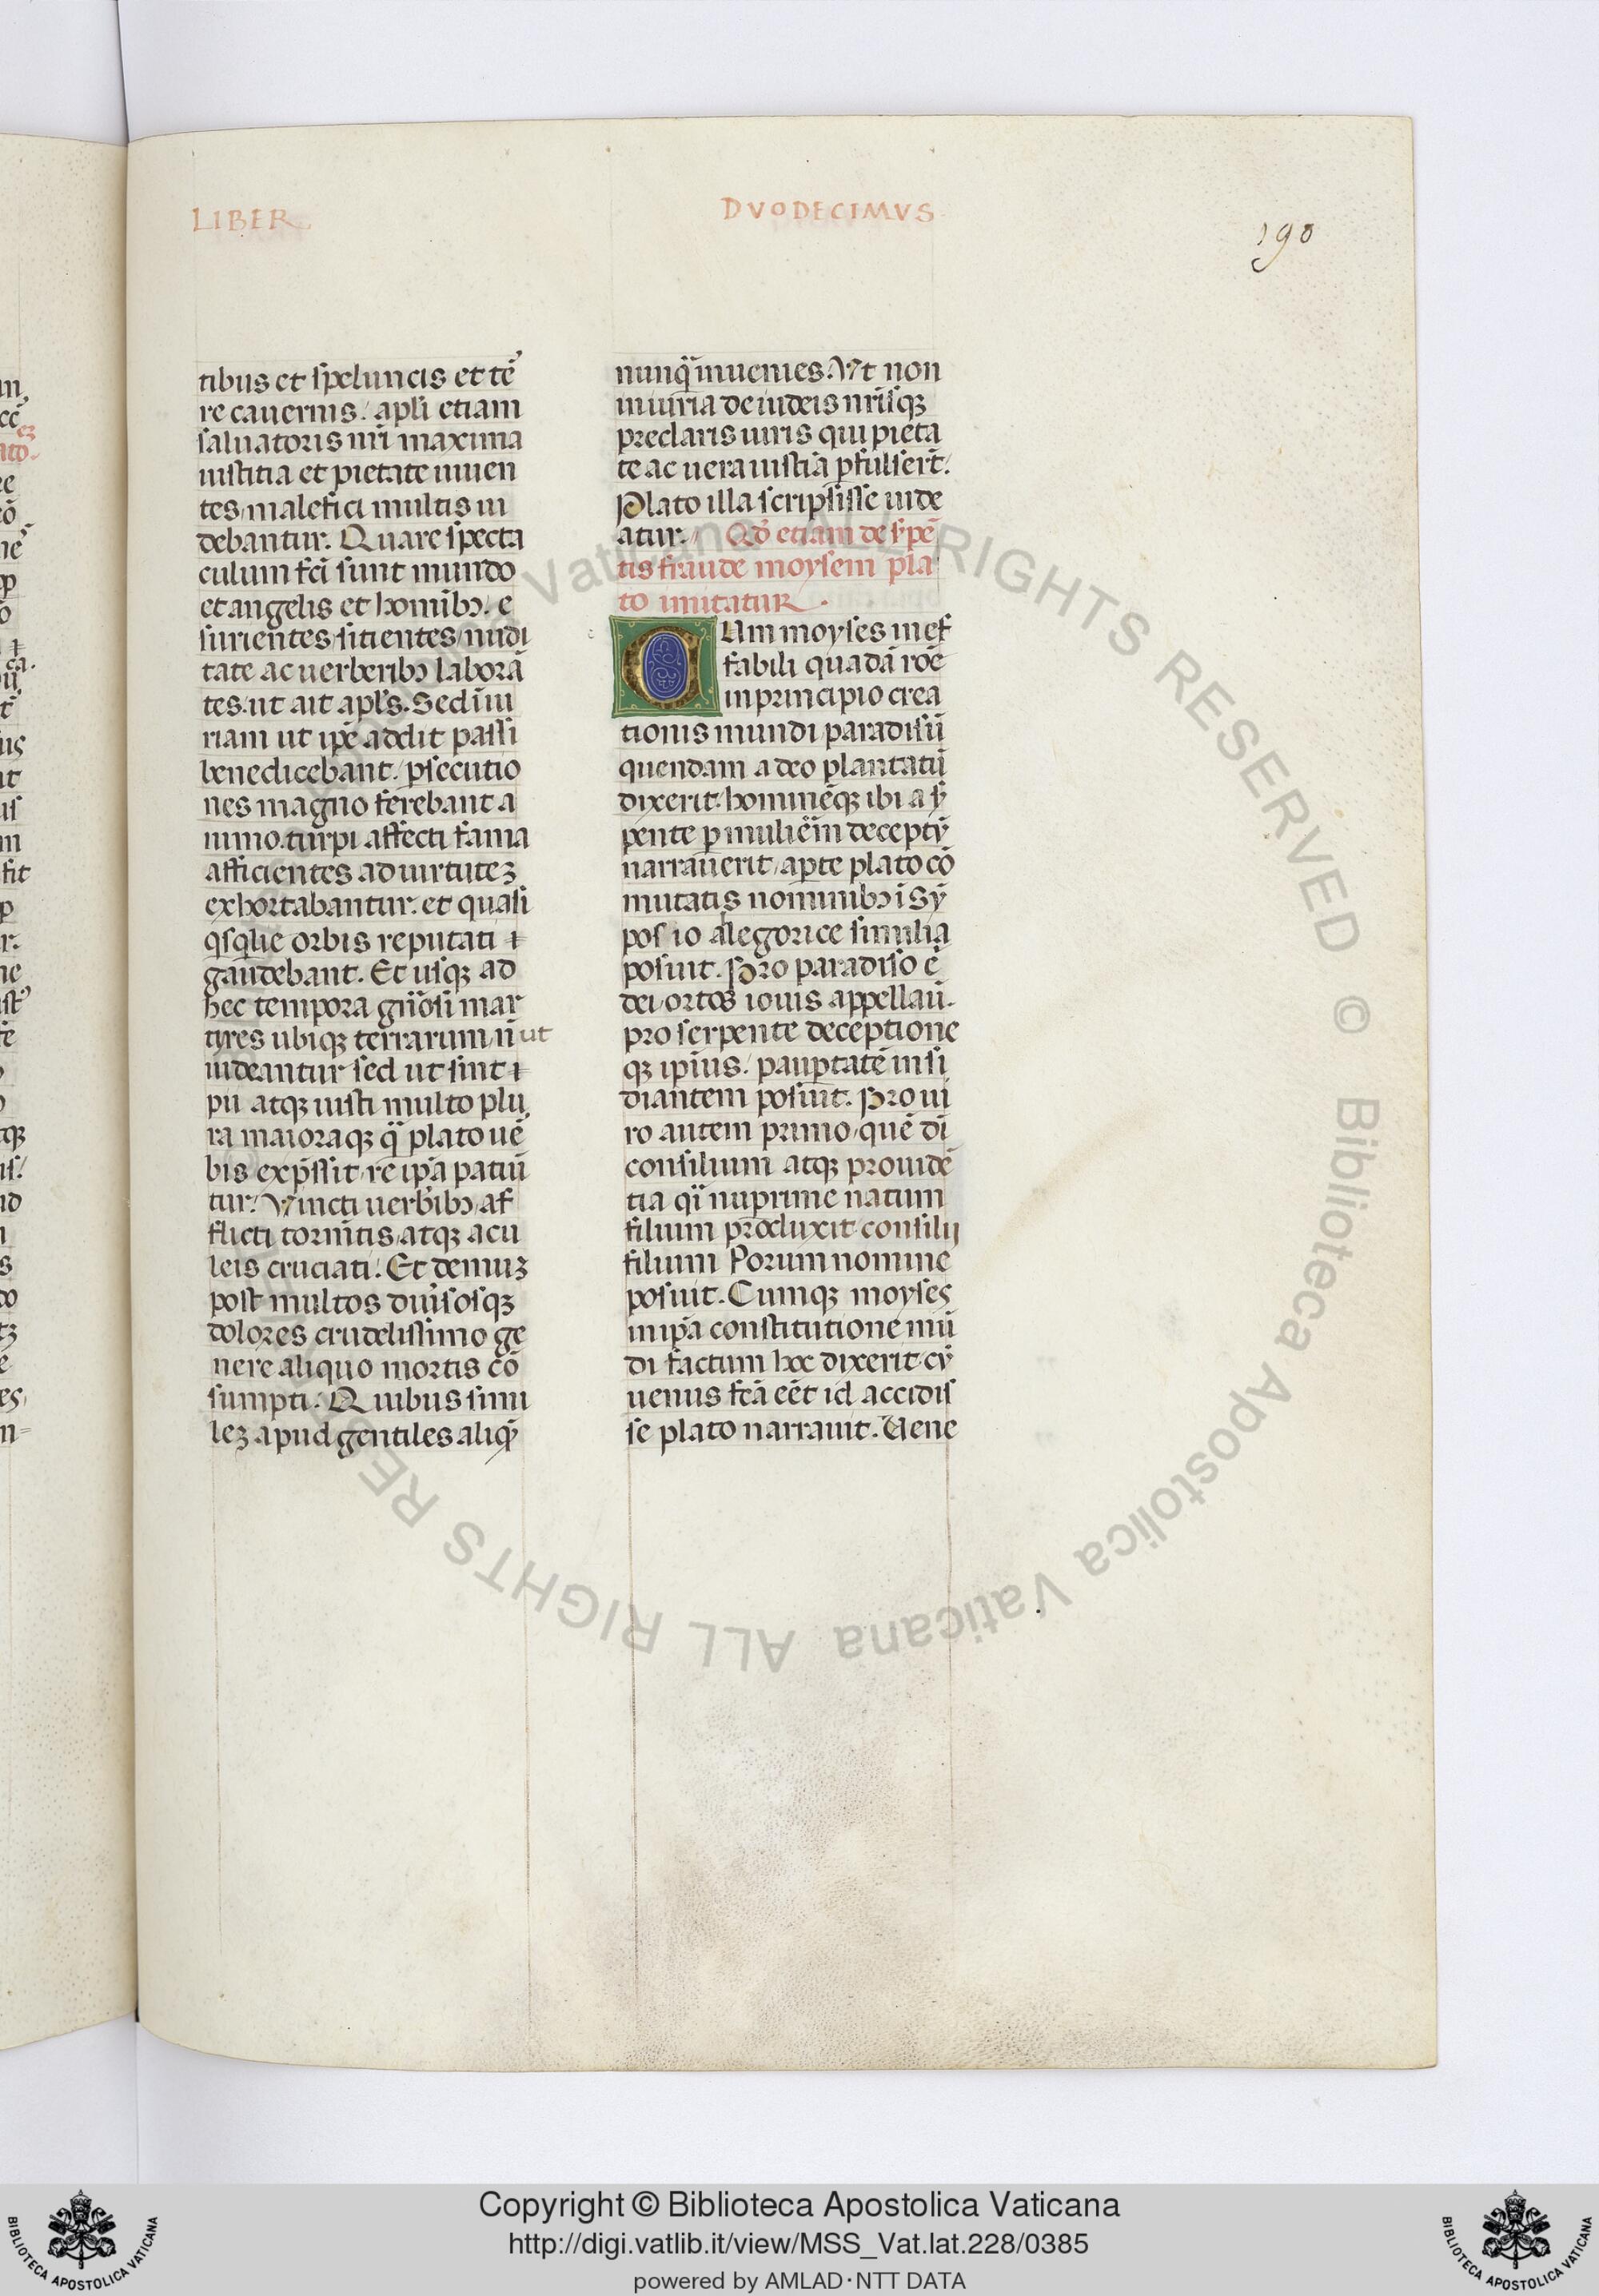 LIBER DVODECIMVS
190
tibus et speluncis et ter̄
re cauernis. apl̄i etiam
saluatoris nr̄i maxima
iustitia et pietate iuuen
tes malefici multis ui
debantur. Quare specta
culum fc̄i sunt mundo
et angelis et homībꝫ. e
surientes sitientes nudi
tate ac uerberibꝫ laborā
tes ut ait apl̄s. Sed īiu
riam ut ip̄e addit passi
benedicebant. ꝑsecutio
nes magno ferebant a
nimo. turpi affecti fama
afficientes ad uirtuteꝫ
exhortabantur. et quasi
orbis reputati
gaudebant. Et usqꝫ ad
hec tempora mar
tyres ubiqꝫ terrarum n̄ ut
uideantur sed ut sint
pii atqꝫ iusti multo plu
ra maioraqꝫ q̄ plato uē
bis exp̄ssit re ip̄a patiū
tur. Vincti uerb̄ibꝫ af
flicti tormētis atqꝫ acu
leis cruciati. Et demuꝫ
post multos diuīsosqꝫ
dolores crudelissimo ge
nere aliquo mortis cō
sumpti. Quibus simi
leꝫ apud gentiles aliqꝫ
nunq̄ inuenies. Vt non
iniuria de iudeis nr̄isqꝫ
preclaris uiris qui pieta
te ac uera iustiā ꝑfulser̄t.
Plato illa scripsisse uide
atur. Qđ etiam de s̄pē
tis fraude moysem pla
to imitatur.
CUm moyses inef
fabili quadā roē
in principio crea
tionis mundi paradisū
quendam a deo plantatū
dixerit hominēqꝫ ibi a s̄
pente ꝑ muliēm deceptū
narrauerit, aꝑte plato cō
mutatis nominibꝫ ī Sȳ
posio alegorice similia
posuit. Pro paradiso ē
dei ortos iouis appellau̅.
pro serpente deceptione
qꝫ ipīus. pauꝑtatē insi
diantem posuit. Pro ui
ro autem primo quē di
consilium atqꝫ prouidē
tia q̄i nuprime natum
filium produxit consilij
filium Porum nomine
posuit. Cumqꝫ moyses
in ip̄a constitutione mū
di factum hoc dixerit cū
uenus fc̄a eēt id accidis
se plato narrauit. Uene
Copyright © Biblioteca Apostolica Vaticana
http://digi.vatlib.it/view/MSS_Vat.lat.228/0385
powered by AMLAD·NTT DATA